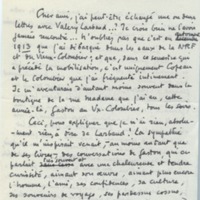 Cher ami, j'ai peut-être échangé une ou deux
lettres avec Valery Larbaud..? Je crois bien ne l'avoir
jamais rencontré... N'oubliez pas que c'est en automne
1913 que j'ai débarqué dans les eaux de la NRF
et du Vieux-Colombier ; et que, dans la semaine qui
a précédé la mobilisation, c'est uniquement Copeau
et le Colombier que j'ai fréquenté intimement.
Je m'aventurais d'autant moins souvent dans la
boutique de la rue Madame que j'ai eu, cette
année-là, Gaston au Vx-Colombier, tous les soirs.
Ceci, pour expliquer que je n'ai rien, abso-
lument rien à dire de Larbaud. La sympathie
qu'il m'inspirait venait au moins autant que
de ses livres, des conversations de Gaston qui en
parlait avec une chaleureuse et tendre
curiosité, aimant son œuvre, aimant plus encore
l'homme, l'ami, ses confidences, sa culture,
ses souvenirs de voyage, ses